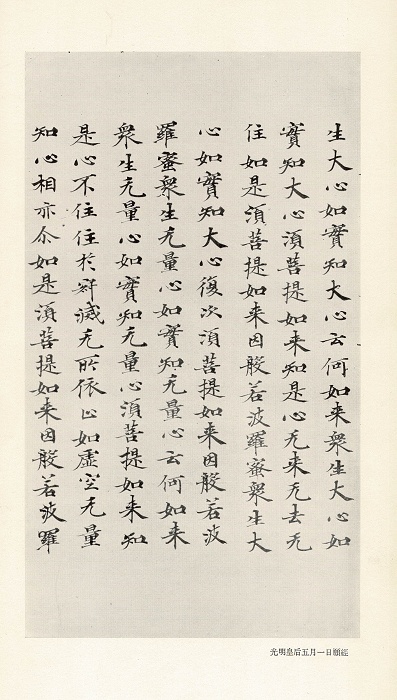 生大心如實知大心云何如来衆生大心如
實知大心須菩提如来知是心无来无去无
住如是須菩提如来因般若波羅蜜衆生大
心如實知大心復次須菩提如来因般若波
羅蜜衆生无量心如實知无量心云何如来
衆生无量心如實知无量心須菩提如来知
是心不住住於寂滅无所依止如虛空无量
知心相亦尒如是須菩提如来因般若波羅
光明皇后五月一日願經